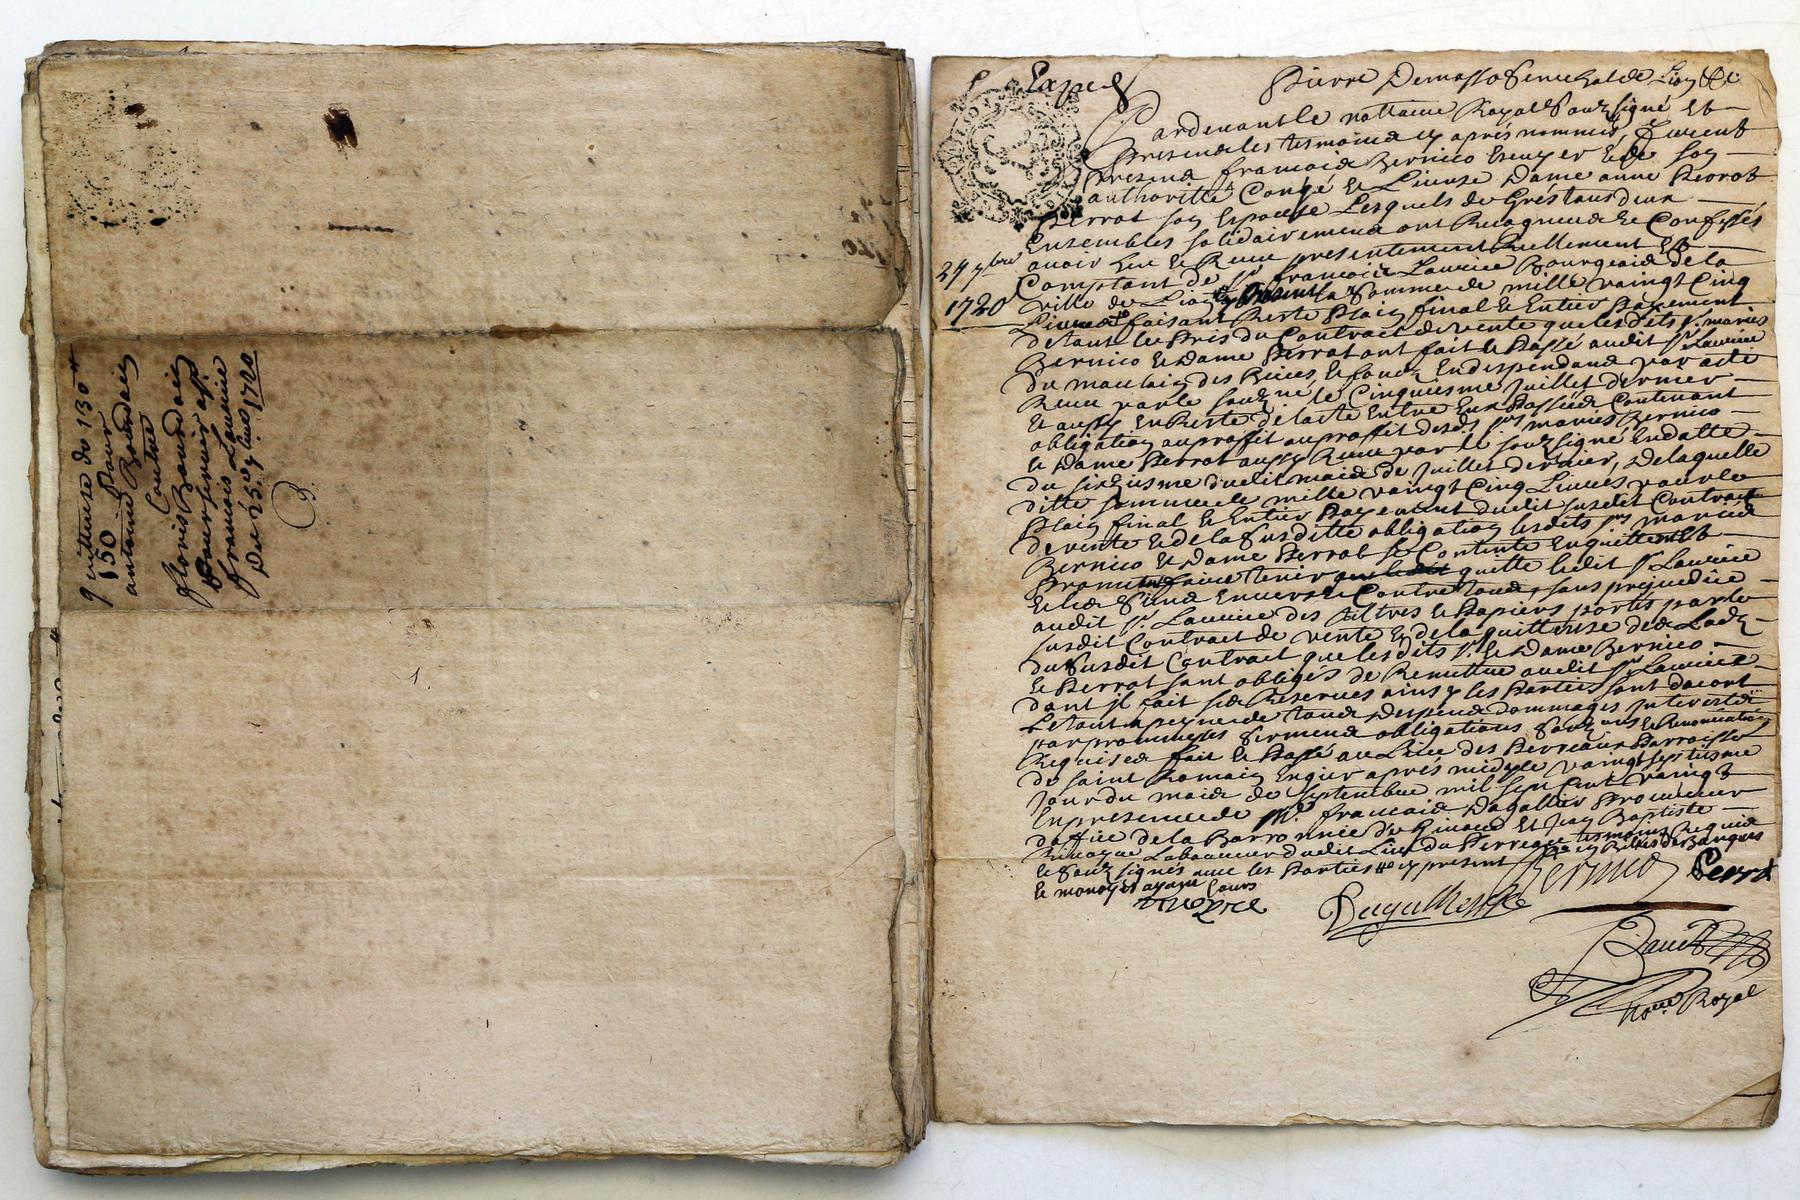 quittance de 130ᴴ
150 pour
antoine Bourdain
Contre
floris Bourdain
Pour servir a
françois Laurire
Du 25 1720
3.
Exped
Pierre Demasso Senechal de Lion &c
27 7bre
1720
Pardevant le nottaire Royal Souzsigné Et
presens les tesmoins cy aprés nommés, furent
presens francois Bernico Escuyer & de soy
authoritté Congé & License Dame anne Perrot
Perrot soy Espouse Lesquels de Grés tous deux
Ensembles solidairement ont Recogneus & Confessés
avoir heu & Receu presentement Reellement Et
Comptant de sr. francois Laurire Bourgeois de la
ville de Lion present la Somme de mille vaingt Cinq
Livres faisant Reste plain final & Entier Payement
détant le Pris du Contract de vente que lesdits sr. mariés
Bernico & Dame Perrot ont fait & Passé audit sr. Laurire
du moulain des Rives, & fonds En dependans par acte
Receu par le souzné le Cinquiesme Juillet dernier
& aussy En Reste de lacte Entre Eux Passé Contenant
obligation au proffit au proffit desds. srs. mariés Bernico
& Dame Perrot aussy Receu par le souzsigné En datte
du sixiesme dudit mois de Juillet dernier, de laquelle
ditte somme de mille vaingt Cinq Livres pour le
Plain final & Entier Payement dudit susdit Contract
de vente & de la Susditte obligation lesdits srs. mariés
Bernico & Dame Perrot se Contente En quittent Et
Promettent faire tenir quitte ledit sr. Laurire
& les Siens Envers & Contre tous, sans prejudice
audit sr. Laurire des tiltres & Papiers portés par le
susdit Contract de vente & de la quittense des Lodz
du Susdit Contract que lesdits sr. & Dame Bernico
& Perrot sont obligés de Remettre audit sr. Laurire
dont il fait ses Reserves ainsy les Parties sont dacort
& tout a peyne de tous despens dommages Interests
par promesses Serment obligations Souz.ons & Renonciations
Requises fait & Passé au Lieu des Perreaux Parroisse
de saint Romain En gier aprés midy le vaingt septiesme
Jour du mois de septembre mil sept Cent vaingt
En presence de Me. francois Dagallier Procureur
doffice de la Barronnie de Givaud Et Jean Baptiste
Laboureur dudit Lieu du Perregue tesmoins Requis
& Souz signés avec les Parties present En Billes de Banques
& monoye ayant Cours
Bernico Perrot
Royal